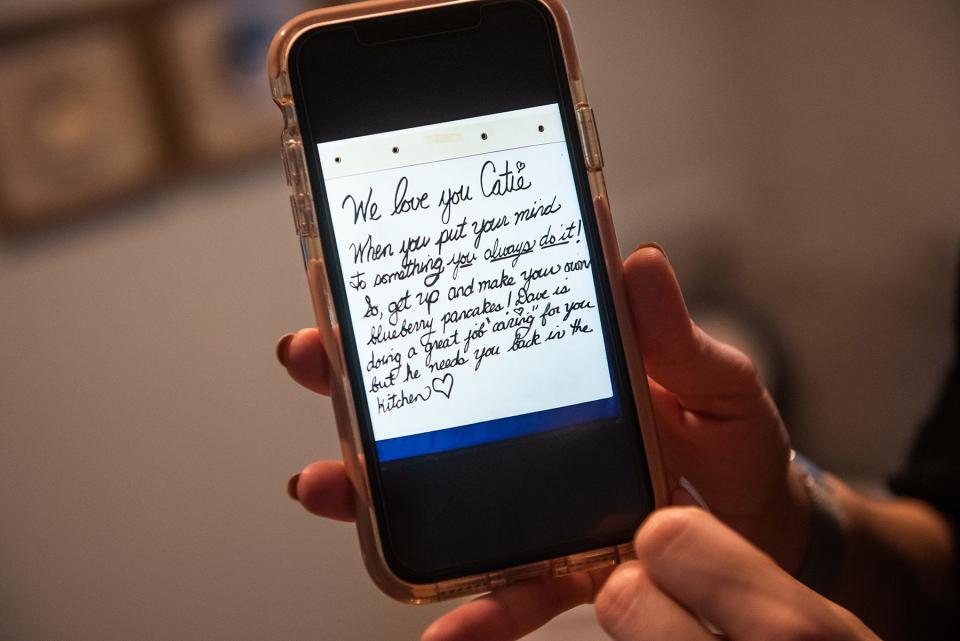 We love you Catie
When you put your mind
to something you always do it!
So, get up and make your own
blueberry pancakes! Dave is
doing a great job "caring" for you
but he needs you back in the
kitchen ♡